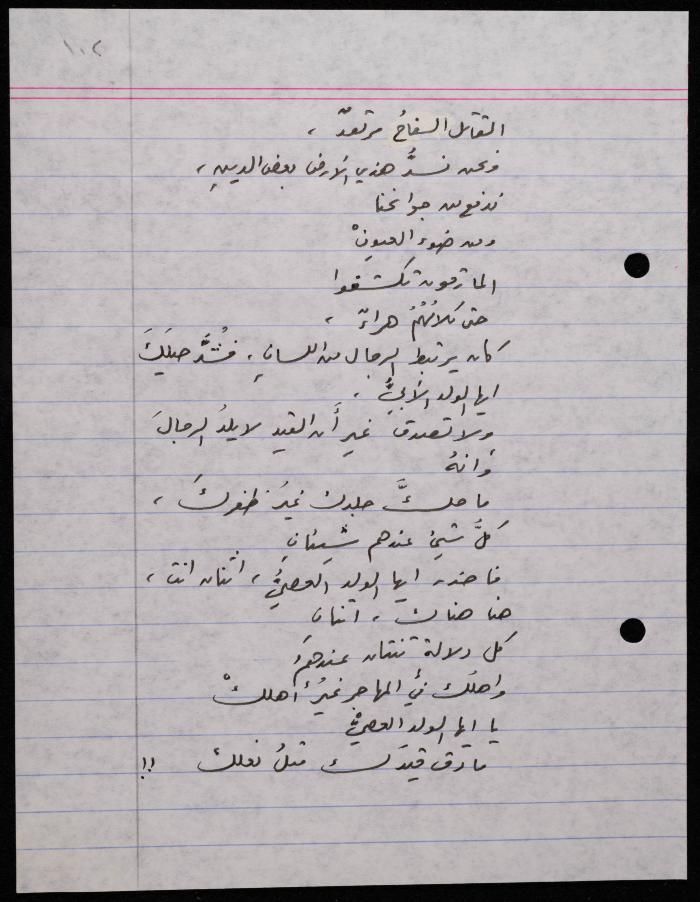 ١٠٢
القاتل السفاحُ مرتعدٌ ،
ونحن نسدُّ هذي الأرض بعض الدينِ ،
ندفع من جوانحنا
ومن ضوء العيونْ
المارقون تكشفوا
حتى كلامُهُمُ هراءٌ ،
كان يرتبط الرجال من اللسانِ ، فشُدَّ حبلَكَ
ايها الولد الأبيُّ ،
ولا تصدق غير أَن القيد لا يلدُ الرجالَ
وانهُ
ما حكَّ جلدك غيرُ ظفركَ ،
كلُّ شيئ عندهم شيئانِ
فاحذر ايها الولد العصيُّ ، اثنان انت ،
هنا هناك ، اثنان
كل دلالة ثنتان عندهمُ
واهلك في المهاجر غيرُ أهلكْ
يا ايها الولد العصيُّ
ما دق قيدَك مثلُ نعلك !!